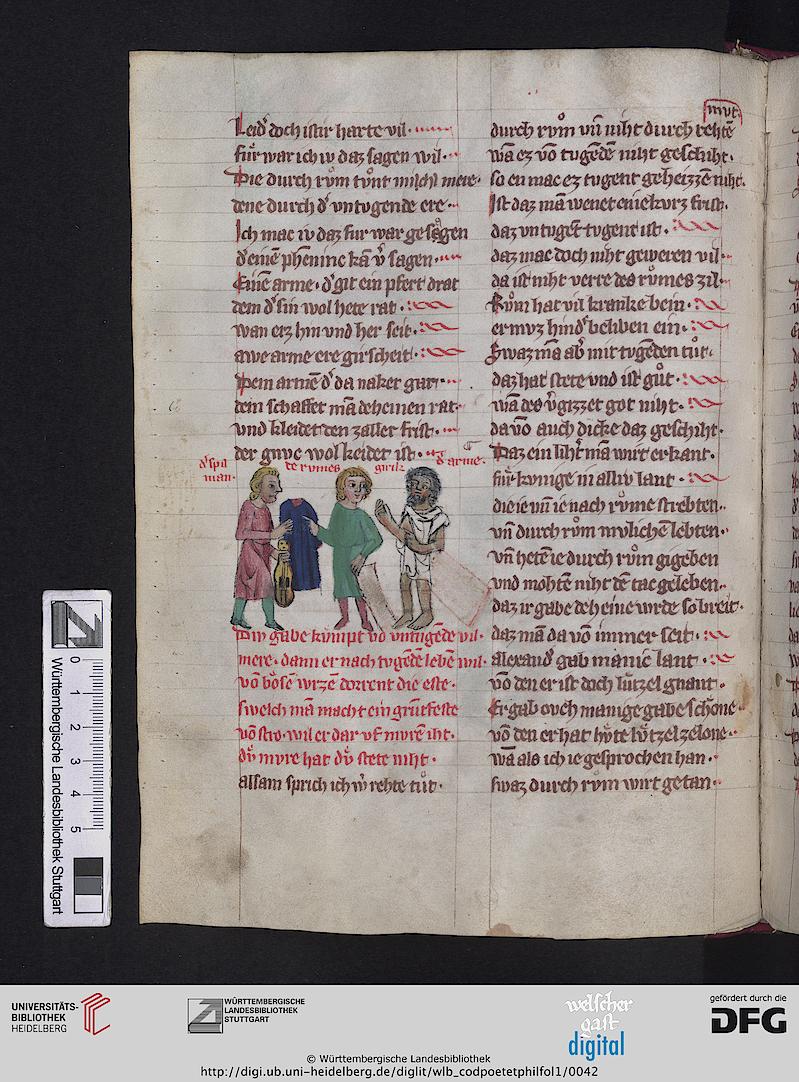 Leid' doch istir harte vil.
fu̇r war ich iv daz sagen wil.
Die durch rům tůnt milchī mere.
dene durch d' vntugende ere.
Ich mac iv daz fur war gesagen
d' einē phenninc kā v̄sagen.
Einē arme. d' git ein pfert drat
dem d' sin wol hete rat.
wan erz hin vnd her seit.
awe arme ere girscheit.
Dem armē d' da naket gar.
dem schaffet mā deheinen rat.
vnd kleidet den zaller frist.
der gnvc wol kleidet ist.
d' spil man.
de rumes
girik
d' arme.
Div gabe kumpt vō vntugēde vil.
mere. dann er nach tvgēde lebē wil.
vō bȯsē wrzē dorrent die este.
swelch mā macht ein gru̇tfeste
vō stro. wil er dar vf mvrē iht.
dv̇ mvre hat dv̇ stete niht.
alsam sprich ich w̄ rehte tůt.
mvt.
durch rvm vn̄ niht durch rehtē
wā ez vō tvgēdē niht geschiht.
so en mac ez tvgent geheizzē niht.
Ist daz mā wenet eine kvrz frist.
daz vntuget tvgent ist.
daz mac doch niht geweren vil.
da ist niht verre des růmes zil.
Rům hat vil kranke bein.
er mvz hind' beliben ein.
Swaz mā ab' mit tvgēden tůt.
daz hat stete vnd ist gůt.
wā des v̄gizzet got niht.
da vō auch dicke daz geschiht.
Daz ein liht' mā wirt erkant.
fu̇r kvnige in alliv lant.
die ie vn̄ ie nach růme strebten.
vn̄ durch rům mvlichē lebten.
vn̄ hetē ie durch rům gigeben
vnd mohtē niht dē tac geleben.
daz ir gabe deheine wrde so breit.
daz mā da vō immer seit.
alexand' gab manic lant.
vō den er ist doch lu̇tzel gnant.
Er gab ovch manige gabe schȯne
vō den er hat hv̇te lv̇tzel zelone.
wā als ich ie gesprochen han.
swaz durch rům wirt getan.
0 1 2 3 4 5
Württembergische Landesbibliothek Stuttgart
UNIVERSITÄTS-
BIBLIOTHEK
HEIDELBERG
WÜRTTEMBERGISCHE
LANDESBIBLIOTHEK
STUTTGART
welscher
gast
digital
gefördert durch die
DFG
© Württembergische Landesbibliothek
http://digi.ub.uni-heidelberg.de/diglit/wlb_codpoetetphilfol1/0042